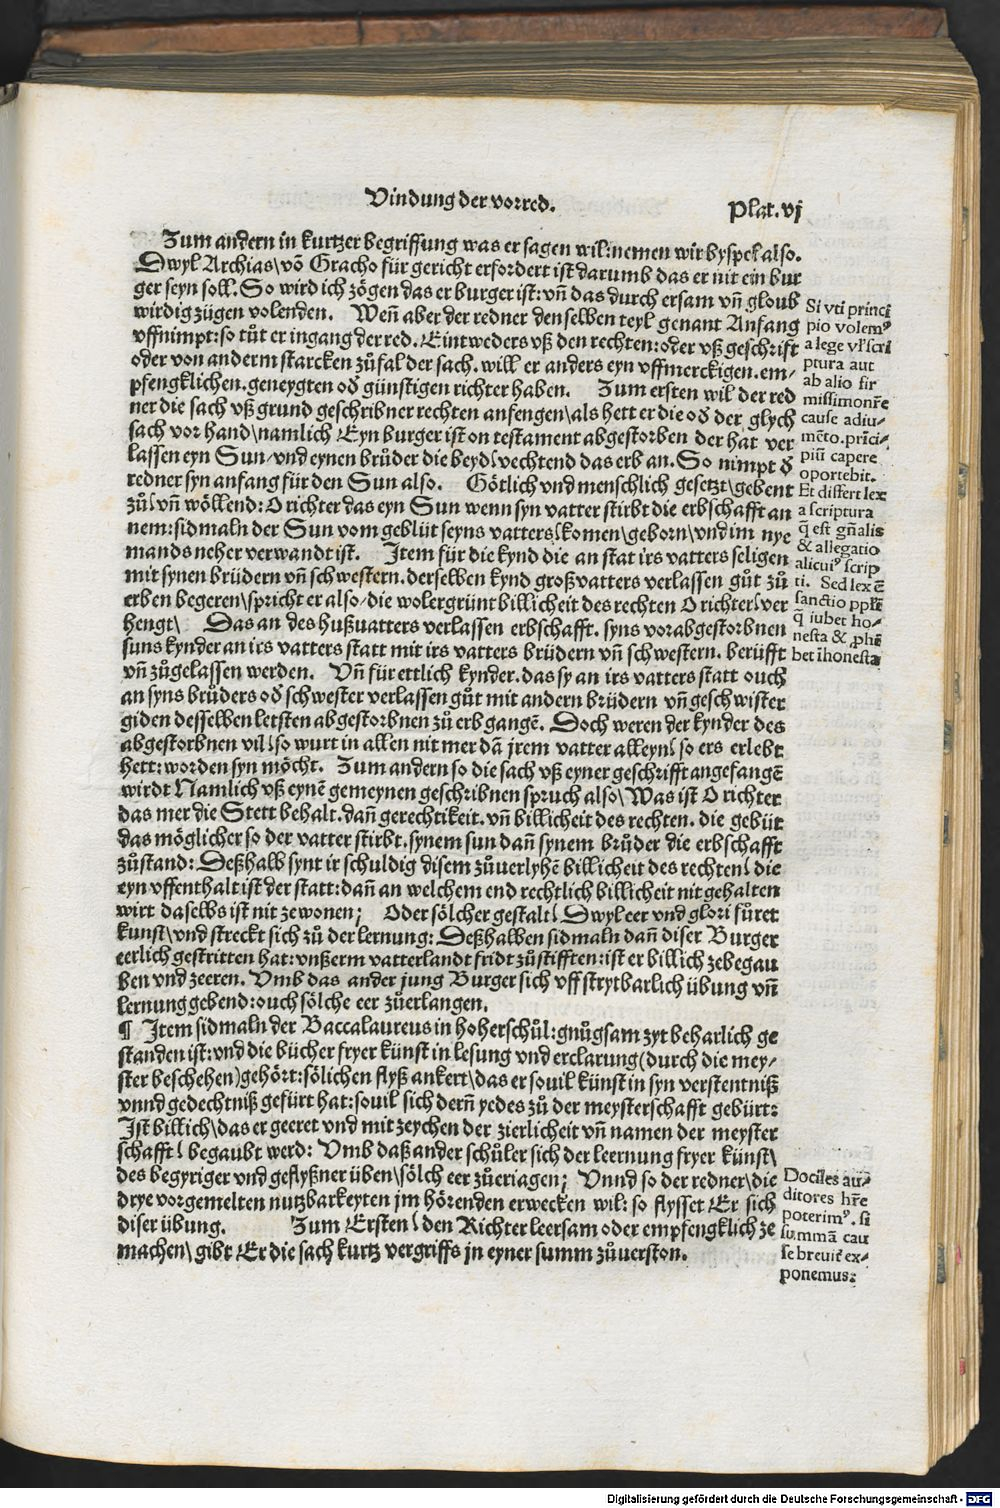 Vindung der vorred.
Plat. vj
Zum andern in kurtzer begriffung was er sagen wil: nemen wir byspel also.
Dwyl Archias\ võ Gracho für gericht erfordert ist darumb das er nit ein bur
ger seyn soll. So wird ich zögen das er burger ist: vñ das durch ersam vñ gloub
wirdig zügen volenden. Weñ aber der redner den selben teyl genant Anfang
vffnimpt: so tůt er ingang der red. Eintweders vß den rechten: oder vß geschrift
oder von anderm starcken zůfal der sach. will er anders eyn vffmerckigen. em-
pfengklichen. geneygten oď günstigen richter haben. Zum ersten wil der red
ner die sach vß grund geschribner rechten anfengen\ als hett er die oď der glych
sach vor hand\ namlich Eyn burger ist on testament abgestorben der hat ver
lassen eyn Sun/ vnd eynen brůder die beyd\ vechtend das erb an. So nimpt ď
redner syn anfang für den Sun also. Götlich vnd menschlich gesetzt\ gebent
zů\ vñ wöllend: O richter das eyn Sun wenn syn vatter stirbt die erbschafft an
nem: sidmaln der Sun vom geblüt seyns vatters\ komen\ geborn\ vnd im nye
mands neher verwandt ist. Item für die kynd die an stat irs vatters seligen
mit synen brüdern vñ schwestern. derselben kynd großvatters verlassen gůt zů
erben begeren\ spricht er also/ die wolergrünt billicheit des rechten O richter\ ver
hengt\ Das an des hußuatters verlassen erbschafft. syns vorabgestorbnen
suns kynder an irs vatters statt mit irs vatters brüdern vñ schwestern. berüfft
vñ zůgelassen werden. Vñ für ettlich kynder. das sy an irs vatters statt ouch
an syns brůders oď schwester verlassen gůt mit andern brüdern vñ geschwister
giden desselben letsten abgestorbnen zů erb gangē. Doch weren der kynder des
abgestorbnen vil\ so wurt in allen nit mer dā jrem vatter alleyn\ so ers erlebt
hett: worden syn möcht. Zum andern so die sach vß eyner geschrifft angefangē
wirdt Namlich vß eynē gemeynen geschribnen spruch also\ Was ist O richter
das mer die Stett behalt. dañ gerechtikeit. vñ billicheit des rechten. die gebüt
das möglicher so der vatter stirbt. synem sun dañ synem brůder die erbschafft
zůstand: Deßhalb synt ir schuldig disem zůuerlyhē billicheit des rechten\ die
eyn vffenthalt ist der statt: dañ an welchem end rechtlich billicheit nit gehalten
wirt daselbs ist nit ze wonen; Oder sölcher gestalt\ Dwyl eer vnd glori fůret
kunst\ vnd streckt sich zů der lernung: Deßhalben sidmaln dañ diser Burger
eerlich gestritten hat: vnßerm vatterlandt fridt zů stifften: ist er billich zebegau
ben vnd zeeren. Vmb das ander jung Burger sich vff strytbarlich übung vñ
lernung gebend: ouch sölche eer zůerlangen.
¶ Item sidmaln der Baccalaureus in hoher schůl: gnůgsam zyt beharlich ge
standen ist: vnd die bücher fryer künst in lesung vnd erclarung (durch die mey/
ster beschehen) gehört: sölichen flyß ankert\ das er souil künst in syn verstentniß
vnnd gedechtniß gefürt hat: souil sich derñ yedes zů der meysterschafft gebürt:
Ist billich\ das er geeret vnd mit zeychen der zierlicheit vñ namen der meyster
schafft\ begaubt werd: Vmb daß ander schůler sich der leernung fryer künst\
des begyriger vnd geflyßner üben\ sölch eer zůeriagen; Vnnd so der redner\ die
drye vorgemelten nutzbarkeyten jm hörenden erwecken wil: so flysset Er sich
diser übung. Zum Ersten\ den Richter leersam oder empfengklich ze
machen\ gibt Er die sach kurtz vergriffs jn eyner summ zůuerston.
Si vti princi
pio volemꝰ
a lege vl' scri
ptura aut
ab alio fir
missimoñre
cause adiu-
mēto. prīci-
piū capere
oportebit.
Et differt lex
a scriptura
q̄ est gñalis
& allegatio
alicuiꝰ scrip
ti. Sed lex ē
sanctio pplē
q̄ iubet ho-
nesta & phē
bet īhonesta
Dociles au-
ditores hr̄e
poterimꝰ. si
summā cau
se breuit̄ ex-
ponemus:
Digitalisierung gefördert durch die Deutsche Forschungsgemeinschaft - DFG